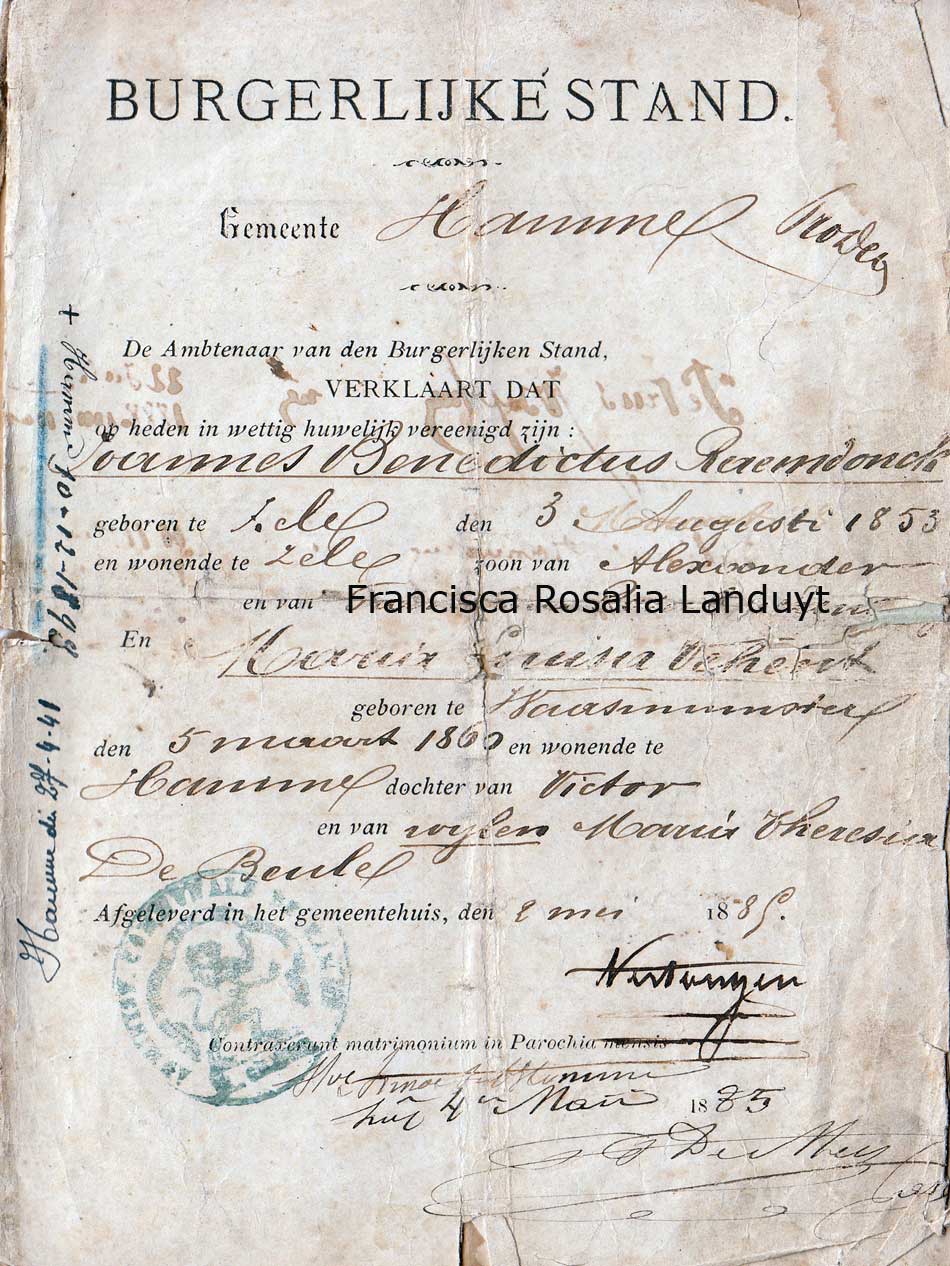 BURGERLIJKE STAND.
Gemeente Hamme
De Ambtenaar van den Burgerlijken Stand,
VERKLAART DAT
op heden in wettig huwelijk vereenigd zijn :
Joannes Benedictus Raemdonck
geboren te Zele den 3 Augusti 1853
en wonende te Zele zoon van Alexander
en van Francisca Rosalia Landuyt
En Maria Louisa
geboren te Waasmunster
den 5 maart 1860 en wonende te
Hamme dochter van Victor
en van wylen Maria Theresia
De Beule
Afgeleverd in het gemeentehuis, den 2 mei 1885.
Contraxerunt matrimonium in Parochia mensis
4 Maii 1885
+ Hamme 10-12-1895
Hamme die 27-4-41